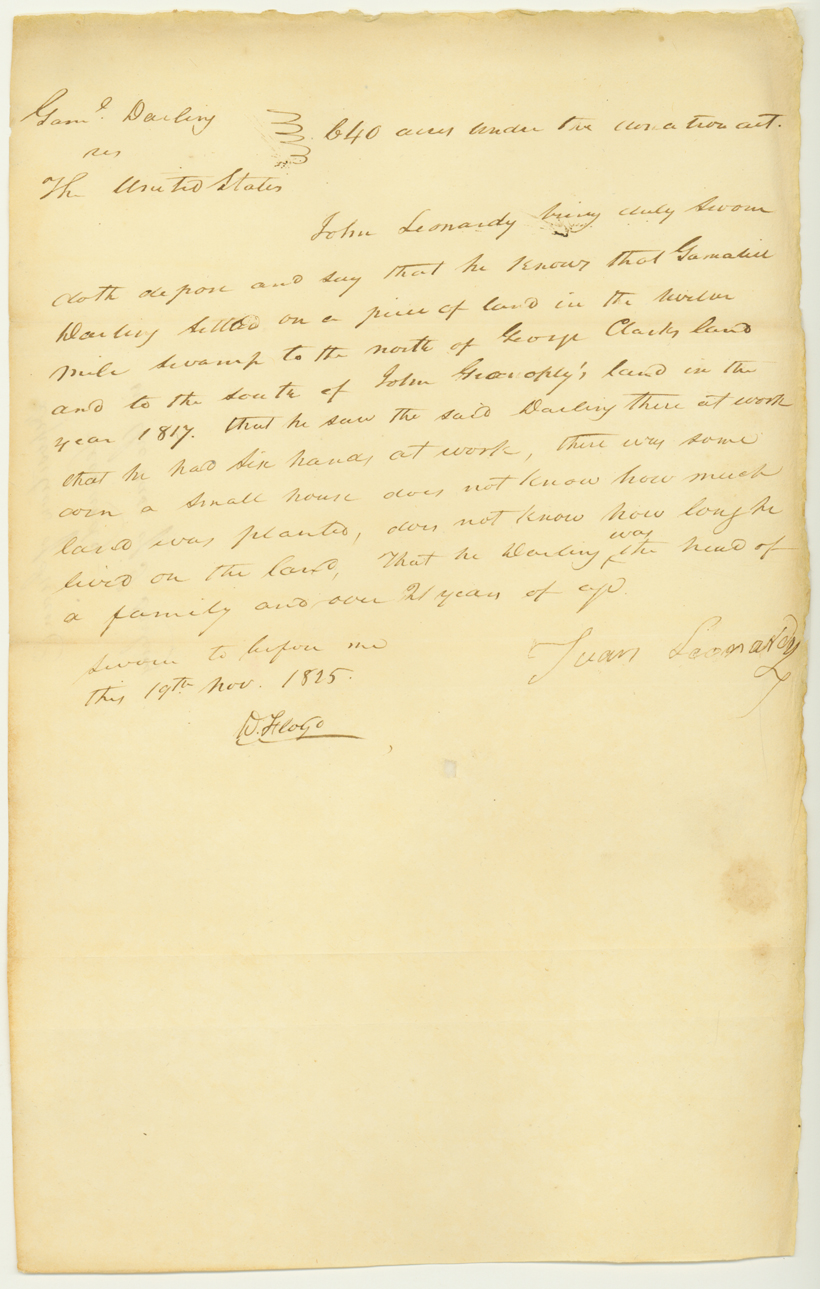 Gaml. Darling
vs
The United States
640 acres under the donation act.
John Leonardy being duly sworn
doth depose and say that he knows that Gamaliel
Darling settled on a piece of land in the twelve
mile swamp to the north of George Clarks land
and to the south of John Geanoply's land in the
year 1817. that he saw the said Darling there at work
that he had six hands at work, there was some
corn a small house does not know how much
land was planted, does not know how long he
lived on the land, That he Darling was the head of
a family and over 21 years of age.
Sworn to before me
this 19th Nov. 1825.
Juan Leonardy
D. Floyd